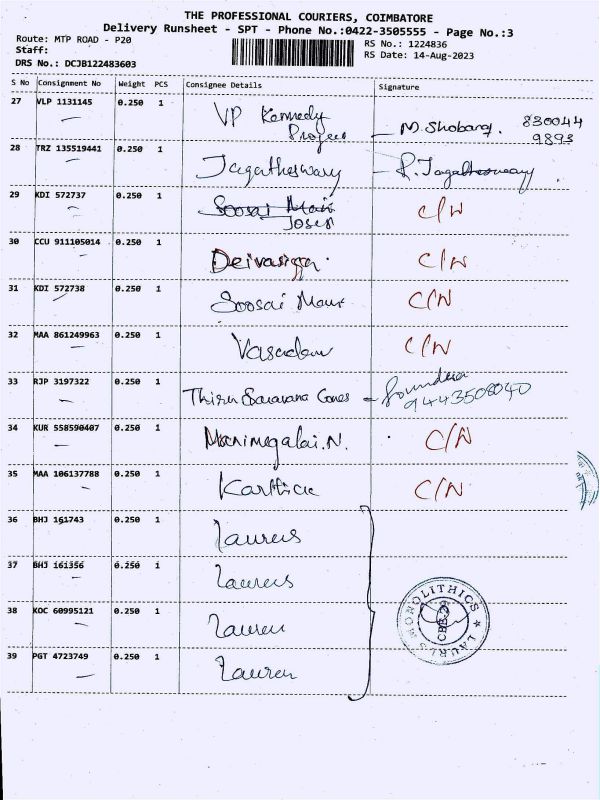 THE PROFESSIONAL COURIERS, COIMBATORE
Delivery Runsheet - SPT - Phone No.:0422-3505555 - Page No.:3
Route: MTP ROAD - P20
RS No.: 1224836
Staff:
RS Date: 14-Aug-2023
DRS No.: DCJB122483603
S No Consignment No Weight PCS Consignee Details Signature
27 VLP 1131145 0.250 1 VP Kennedy
M. Shobana. 830044
9893
28 TRZ 135519441 0.250 1 Jagatheswary R. Jagatheswary
29 KDI 572737 0.250 1 Soosai Mari C/N
Josep
30 CCU 911105014 0.250 1 Deivasigga. C/N
31 KDI 572738 0.250 1 Soosai Mari C/N
32 MAA 861249963 0.250 1 C/N
33 RJP 3197322 0.250 1 Thiru Saravana Cones
9443508040
34 KUR 558590407 0.250 1 Manimegalai.N. C/N
35 MAA 106137788 0.250 1 Karthica C/N
36 BHJ 161743 0.250 1 Laurels
37 BHJ 161356 0.250 1 Laurels
38 KOC 60995121 0.250 1 Lauren
LAUREL MONOLITHICS
CBE-29
39 PGT 4723749 0.250 1 Lauren